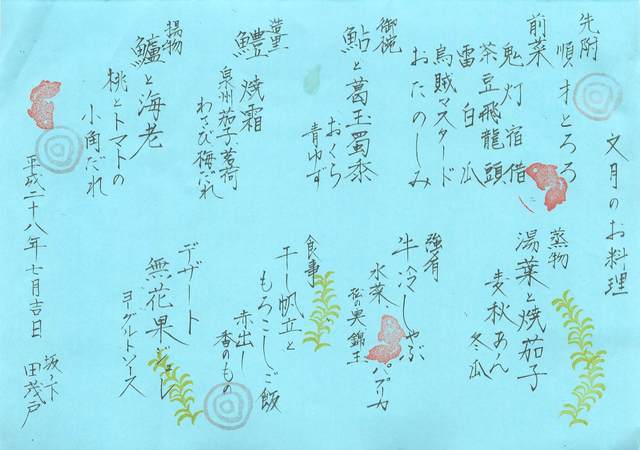 文月のお料理
先附
順才とろろ
前菜
鬼灯宿借
茶豆飛龍頭
雷白瓜
烏賊マスタード
おたのしみ
御椀
鮎と葛玉蜀黍
おくら
青ゆず
鱧焼霜
泉州茄子茗荷
わさび梅だれ
揚物
鱸と海老
桃とトマトの
小角だれ
蒸物
湯葉と焼茄子
麦秋あん
冬瓜
強肴
牛冷しゃぶ
水菜 パプリカ
松の実錦玉
食事
干し帆立と
もろこしご飯
赤出し
香のもの
デザート
無花果ジュレ
ヨーグルトソース
平成二十八年七月吉日
坂下
田茂戸